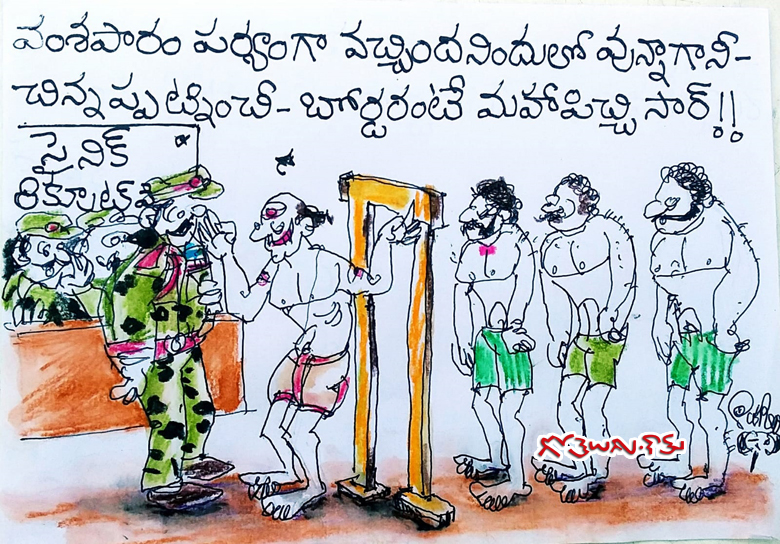 వంశపారం పర్యంగా వచ్చిందనిందులో వున్నాగానీ-
చిన్నప్పట్నించీ- బోర్డరంటే మహాపిచ్చి సార్!!
సైనిక్
గోతెలుగు.కామ్